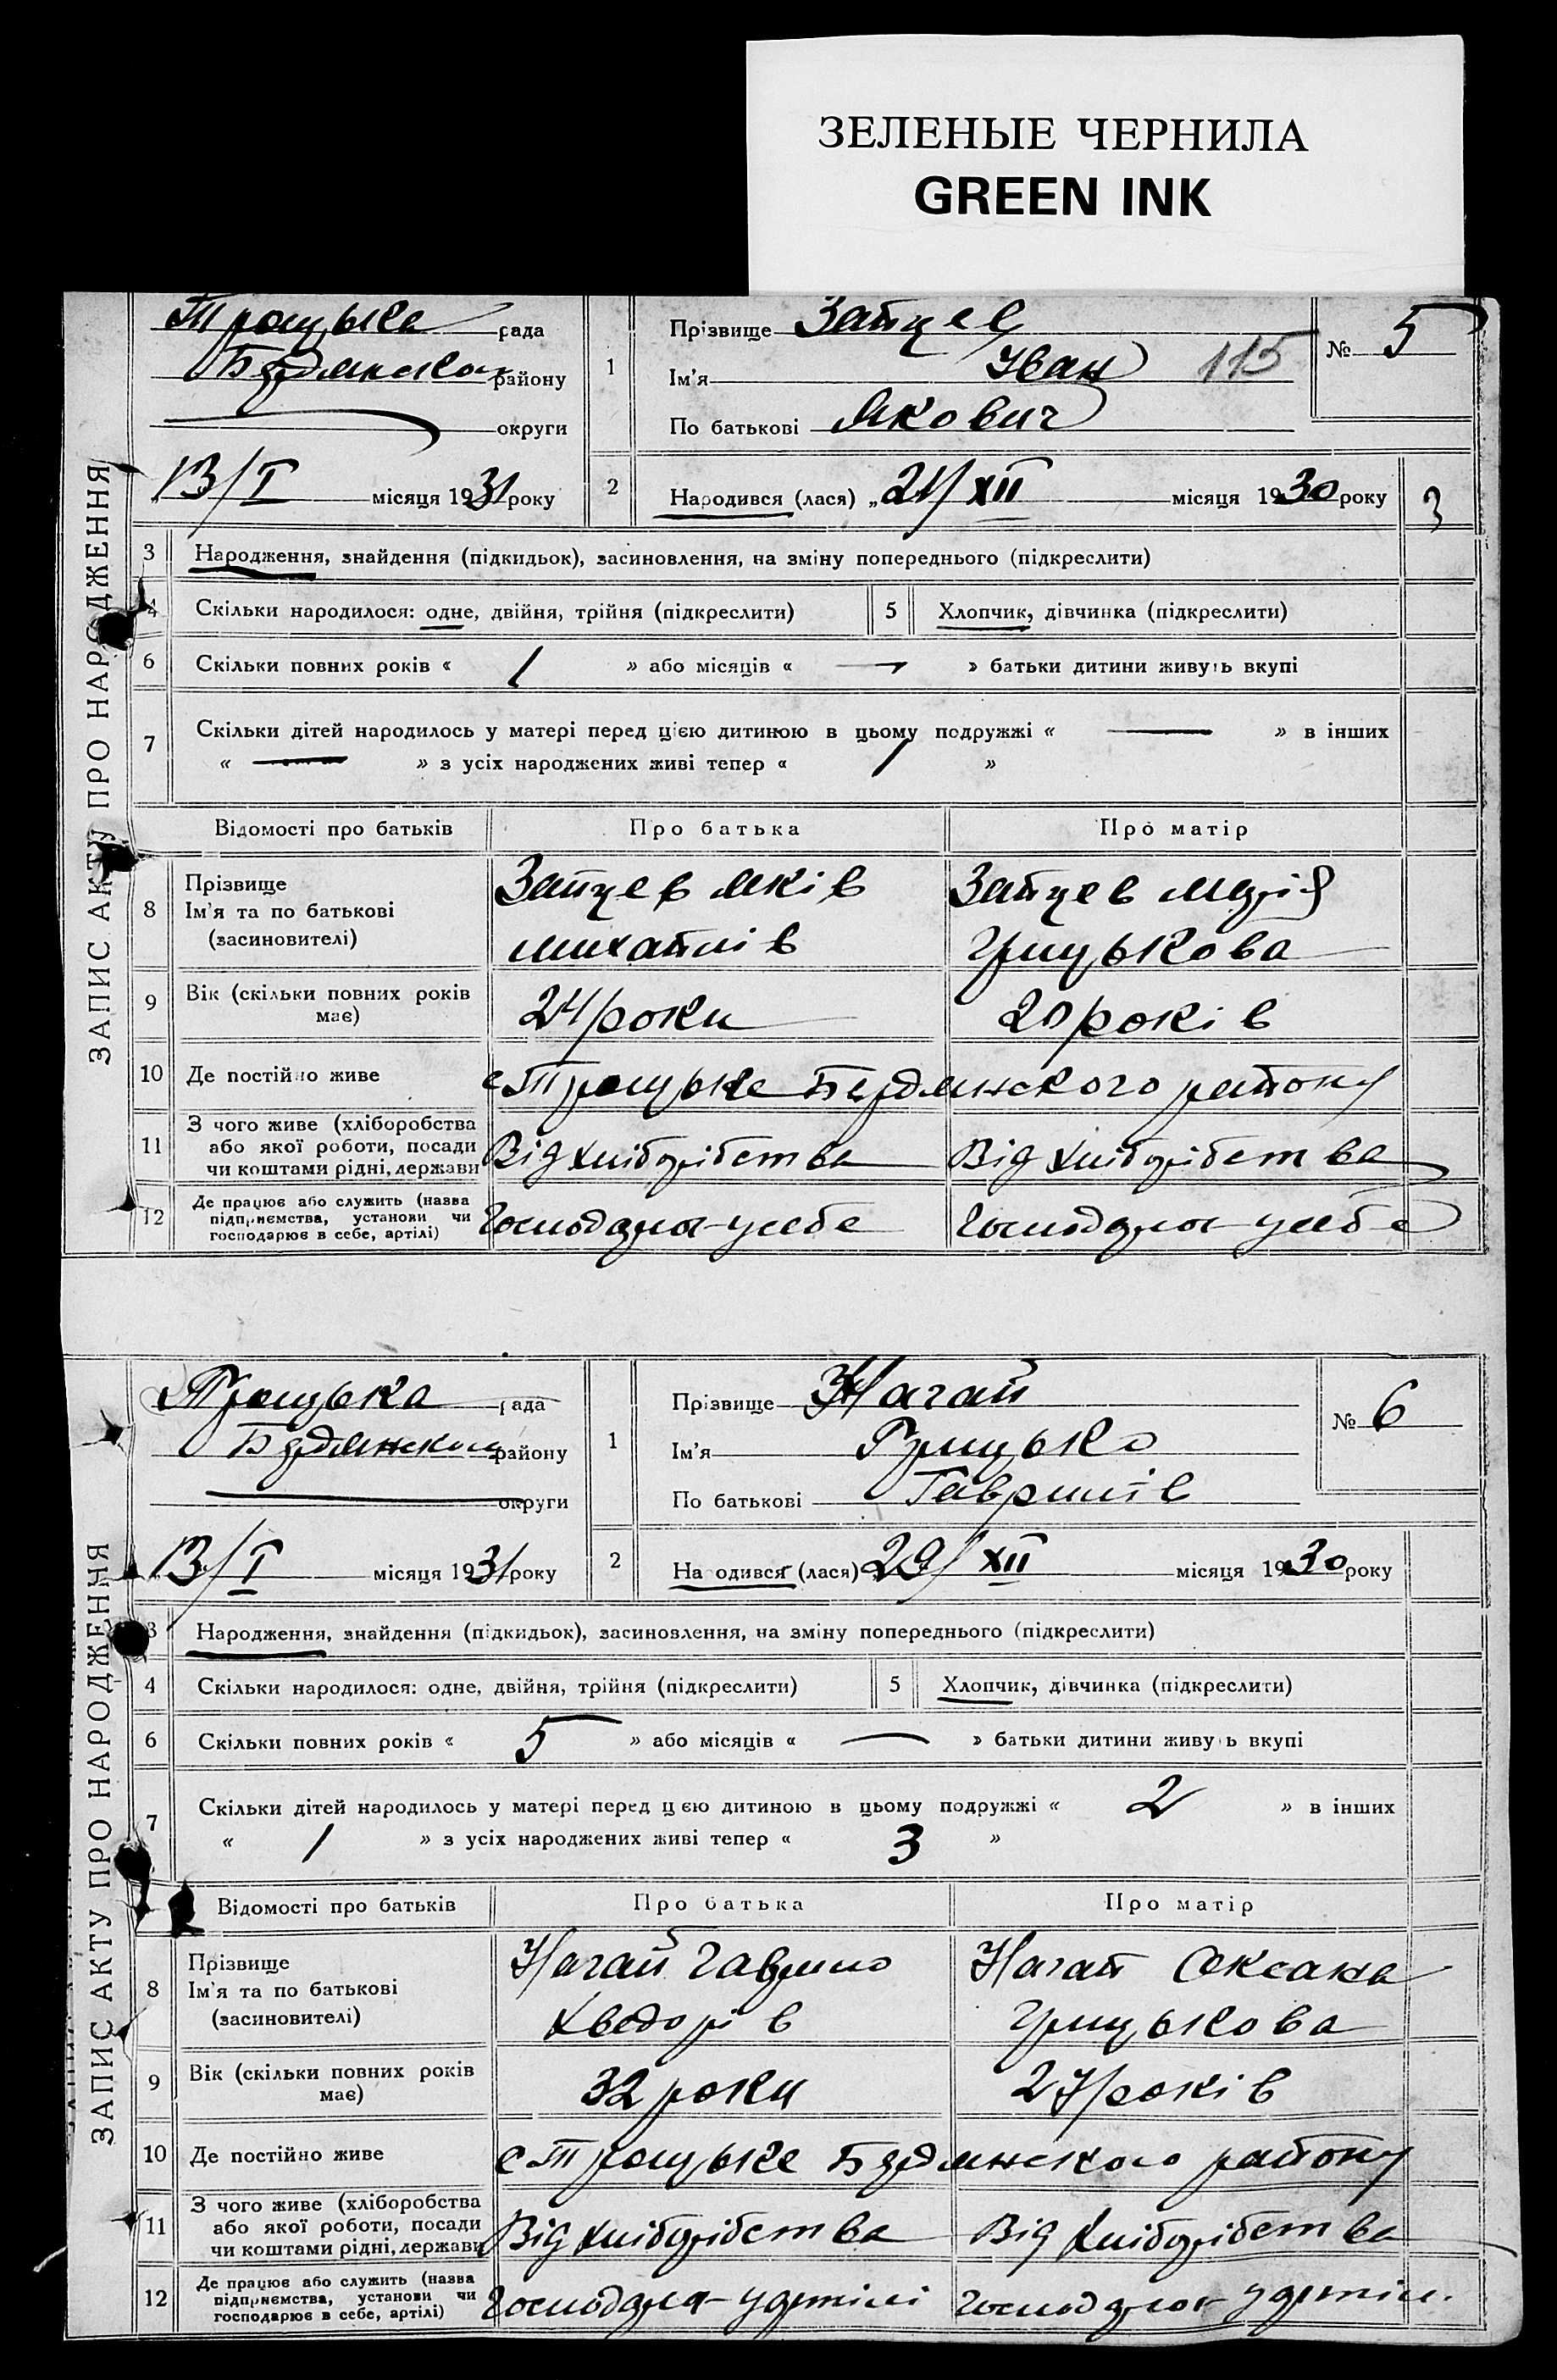 ЗЕЛЕНЫЕ ЧЕРНИЛА
GREEN INK
ЗАПИС АКТУ ПРО НАРОДЖЕННЯ
Троцька рада
Бердянського району
округи
13/I місяця 1931 року
1
Прізвище Зайцев
Ім'я Іван 115
По батькові Якович
№ 5
2
Народився (лася) „21/XII місяця 1930 року
3
3 Народження, знайдення (підкидьок), засиновлення, на зміну попереднього (підкреслити)
4 Скільки народилося: одне, двійня, трійня (підкреслити) 5 Хлопчик, дівчинка (підкреслити)
6 Скільки повних років « 1 » або місяців « — » батьки дитини живуть вкупі
7 Скільки дітей народилось у матері перед цією дитиною в цьому подружжі « — » в інших
« — » з усіх народжених живі тепер « 1 »
Відомості про батьків Про батька Про матір
8 Прізвище Ім'я та по батькові (засиновителі)
Зайцев Яків Михайлів
Зайцев Марія Грицькова
9 Вік (скільки повних років має) 24 роки 20 років
10 Де постійно живе с Троцьке Бердянского району
11 З чого живе (хліборобства або якої роботи, посади чи коштами рідні, держави
Від хліборібства Від хліборібства
12 Де працює або служить (назва підприємства, установи чи господарює в себе, артілі)
Господарює у себе Господарює у себе
ЗАПИС АКТУ ПРО НАРОДЖЕННЯ
Троцька рада
Бердянського району
округи
13/I місяця 1931 року
1
Прізвище Нагай
Ім'я Грицько
По батькові Гаврилів
№ 6
2
Народився (лася) 29/XII місяця 1930 року
3 Народження, знайдення (підкидьок), засиновлення, на зміну попереднього (підкреслити)
4 Скільки народилося: одне, двійня, трійня (підкреслити) 5 Хлопчик, дівчинка (підкреслити)
6 Скільки повних років « 5 » або місяців « — » батьки дитини живуть вкупі
7 Скільки дітей народилось у матері перед цією дитиною в цьому подружжі « 2 » в інших
« 1 » з усіх народжених живі тепер « 3 »
Відомості про батьків Про батька Про матір
8 Прізвище Ім'я та по батькові (засиновителі)
Нагай Гаврило Хведорів
Нагай Оксана Грицькова
9 Вік (скільки повних років має) 32 роки 27 років
10 Де постійно живе с Троцьке Бердянского району
11 З чого живе (хліборобства або якої роботи, посади чи коштами рідні, держави
Від хліборібства Від хліборібства
12 Де працює або служить (назва підприємства, установи чи господарює в себе, артілі)
Господарює у артілі Господарює у артіл.